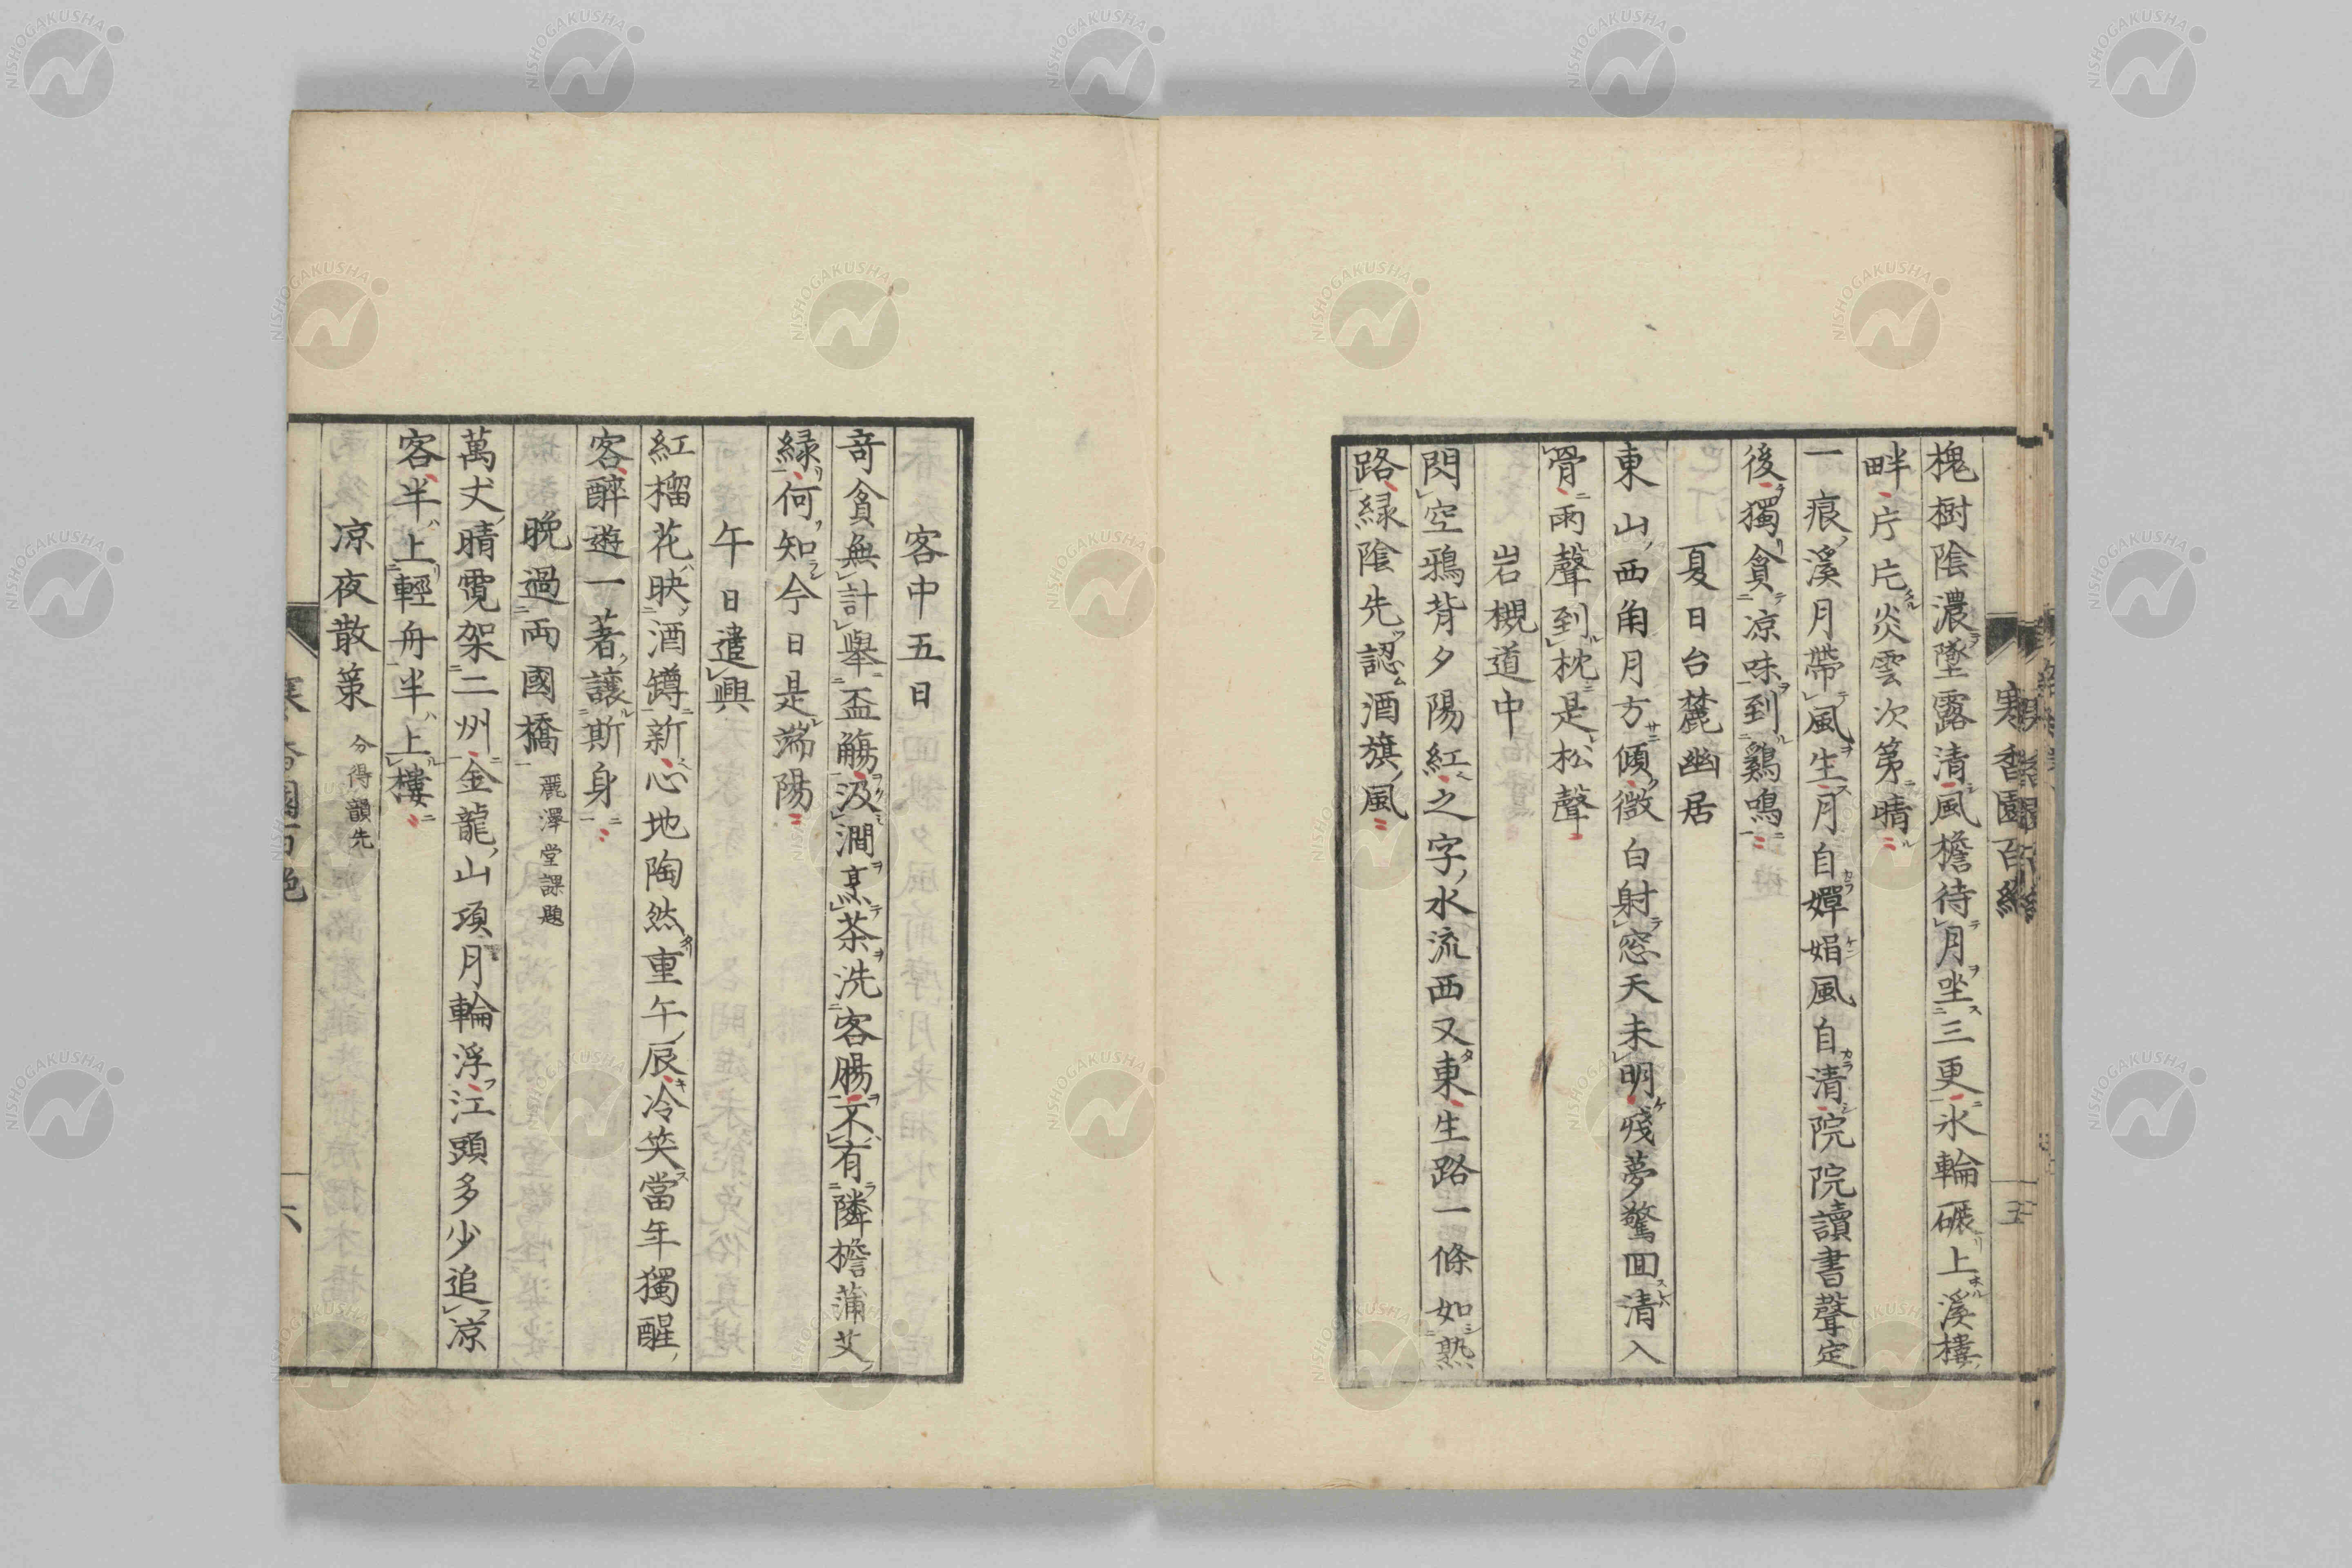 槐樹陰濃墜露清風檐待月坐三更氷輪碾上溪樓
畔片片炎雲次第晴
一痕溪月帶風生月自嬋娟風自清院院讀書聲定
後獨貪凉味到鷄鳴
夏日台麓幽居
東山西角月方傾微白射窓天未明殘夢驚回清入
骨雨聲到枕是松聲
岩槻道中
閃空鴉背夕陽紅之字水流西又東生路一條如熟
路緑陰先認酒旗風
寒香園百絶
五
客中五日
奇貪無計擧盃觴汲澗烹茶洗客腸不有隣檐蒲艾
緑何知今日是端陽
午日遣興
紅榴花映酒罇新心地陶然重午辰冷笑當年獨醒
客醉遊一著讓斯身
晩過両國橋 麗澤堂課題
萬丈晴霓架二州金龍山頂月輪浮江頭多少追凉
客半上輕舟半上樓
凉夜散策 分得韻先
六
NISHOGAKUSHA